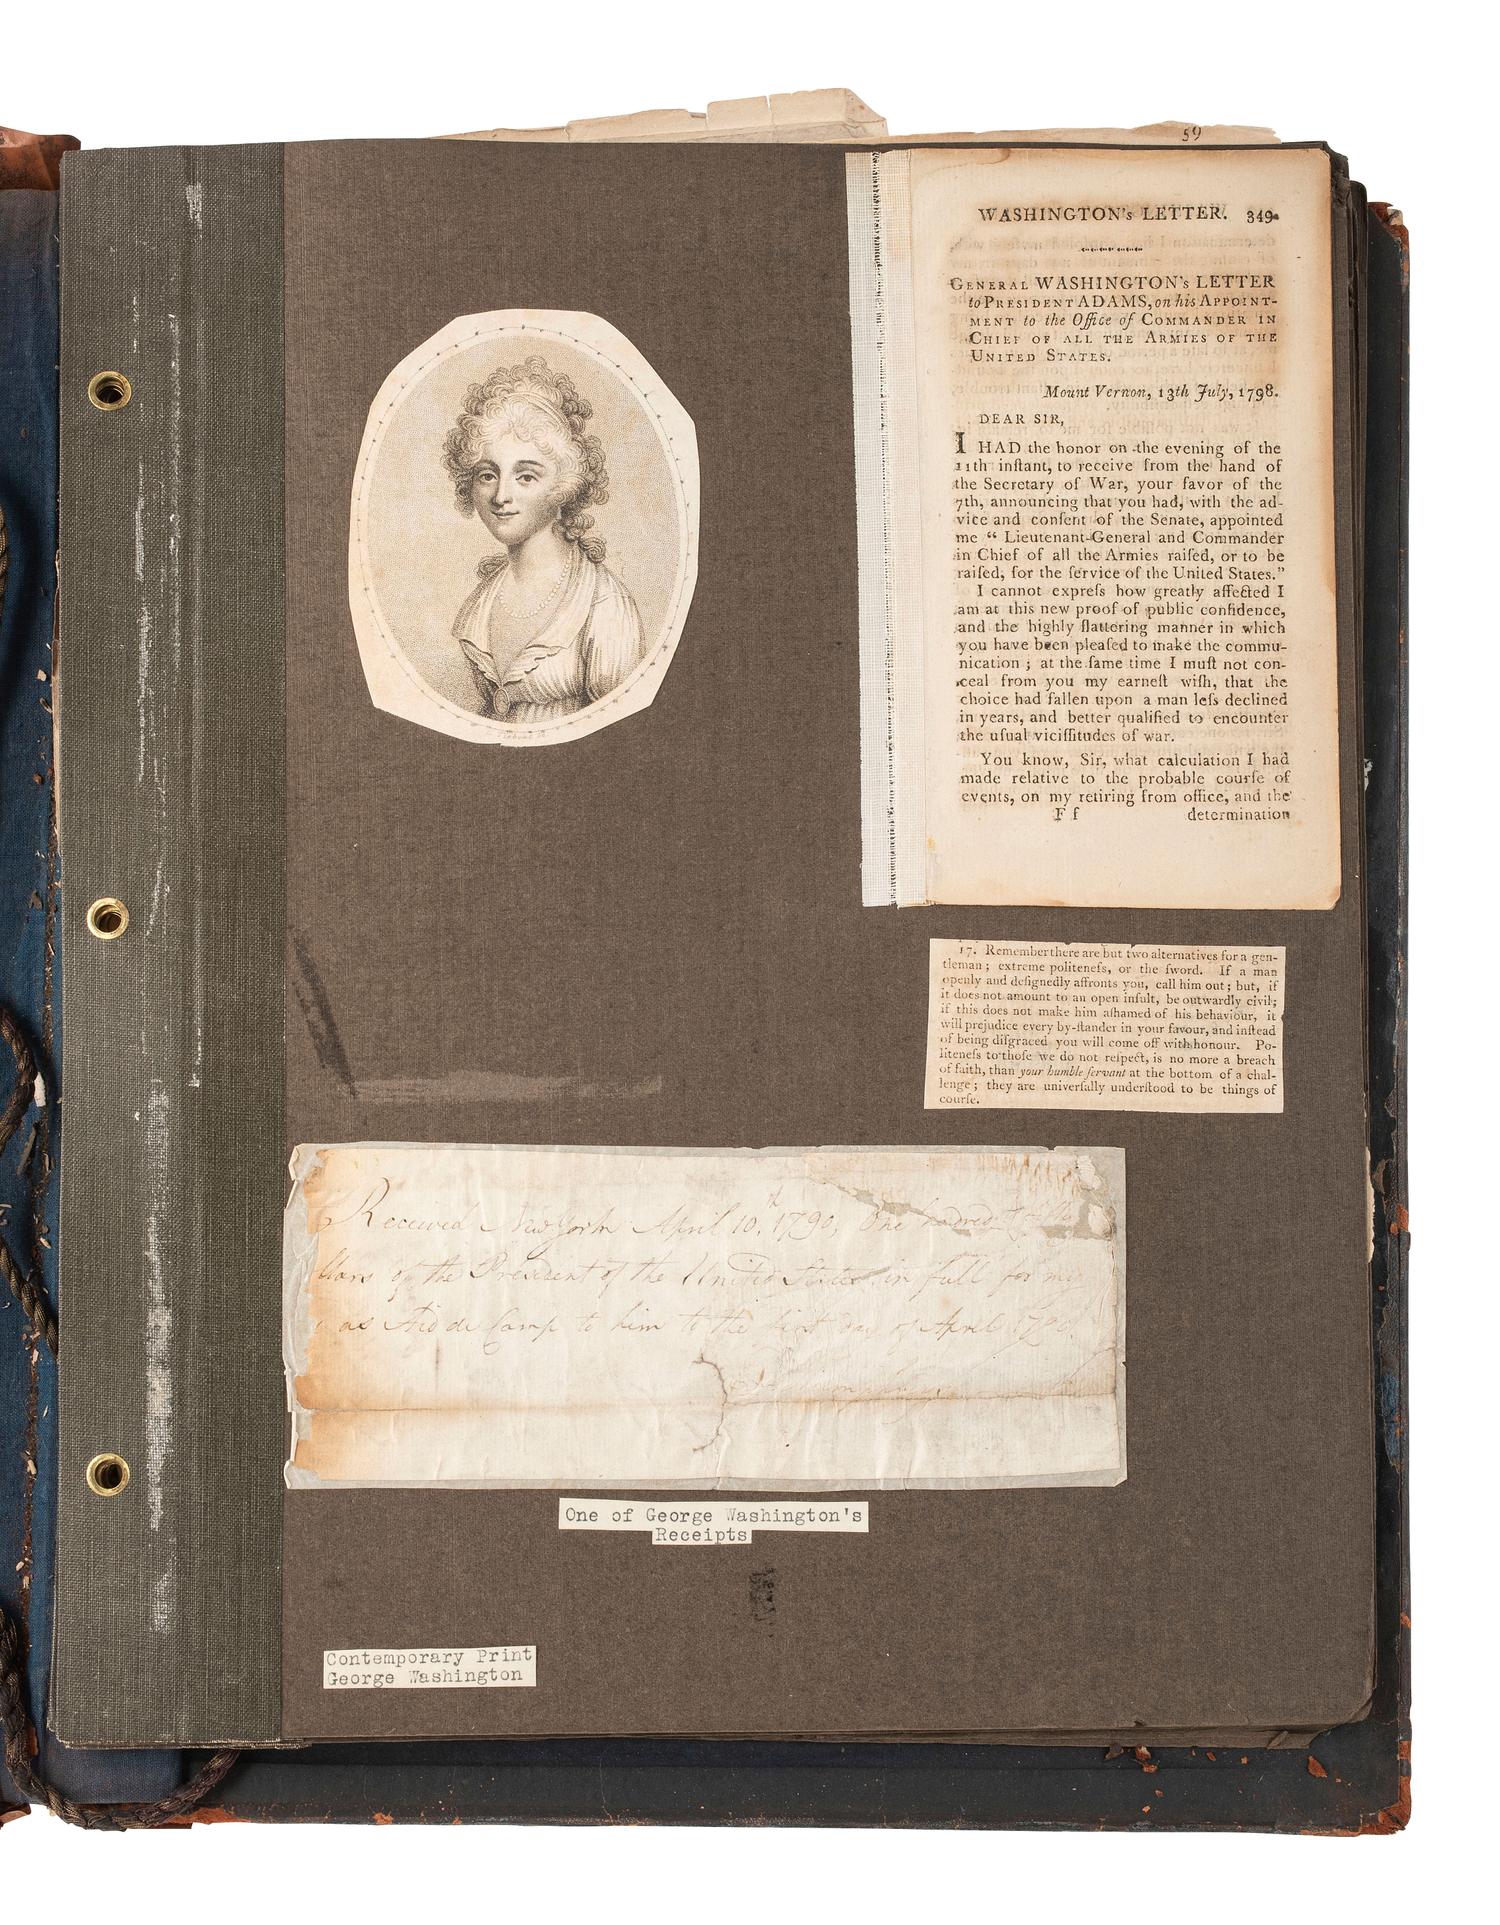 59
WASHINGTON's LETTER. 349
GENERAL WASHINGTON's LETTER
to PRESIDENT ADAMS, on his APPOINT-
MENT to the Office of COMMANDER IN
CHIEF OF ALL THE ARMIES OF THE
UNITED STATES.
Mount Vernon, 13th July, 1798.
DEAR SIR,
I HAD the honor on the evening of the
11th inſtant, to receive from the hand of
the Secretary of War, your favor of the
7th, announcing that you had, with the ad-
vice and conſent of the Senate, appointed
me “ Lieutenant-General and Commander
in Chief of all the Armies raiſed, or to be
raiſed, for the ſervice of the United States.”
I cannot expreſs how greatly affected I
am at this new proof of public confidence,
and the highly flattering manner in which
you have been pleaſed to make the commu-
nication ; at the ſame time I muſt not con-
ceal from you my earneſt wiſh, that the
choice had fallen upon a man leſs declined
in years, and better qualified to encounter
the uſual viciſſitudes of war.
You know, Sir, what calculation I had
made relative to the probable courſe of
events, on my retiring from office, and the
F f determination
17. Remember there are but two alternatives for a gen-
tleman ; extreme politeneſs, or the ſword. If a man
openly and deſignedly affronts you, call him out ; but, if
it does not amount to an open inſult, be outwardly civil;
if this does not make him aſhamed of his behaviour, it
will prejudice every by-ſtander in your favour, and inſtead
of being diſgraced you will come off with honour. Po-
liteneſs to thoſe we do not reſpect, is no more a breach
of faith, than your humble ſervant at the bottom of a chal-
lenge ; they are univerſally underſtood to be things of
courſe.
Received New York April 10.th 1790, One hundred
llars of the President of the United States in full for my
as Aid de Camp to him to the first day of April 1790.
One of George Washington's
Receipts
Contemporary Print
George Washington